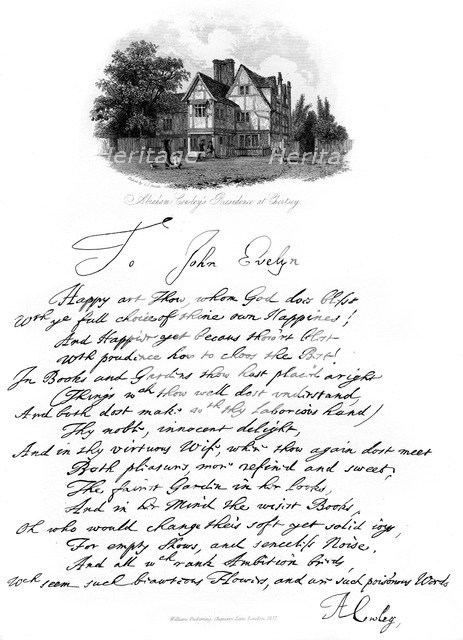 Heritage Heritage
Abraham Cowley's Residence at Chertsey
To John Evelyn
Happy art Thou, whom God does bless
Wth ye full choice of thine own Happines!
And Happier yet becaus thou'rt blest
Wth prudence how to choos the Best!
In Books and Gardens thou hast plac'd aright
(Things wch thou well dost understand,
And both dost make wth thy laborious hand)
Thy noble, innocent delight,
And in thy virtuous Wife, wher thou again dost meet
Both pleasures more refin'd and sweet;
The fairest Garden in her looks,
And in her Mind the wisest Books.
Oh who would change theis soft yet solid ioys,
For empty Shows, and senceless Noise,
And all wch rank Ambition birds,
Wch seem such beauteous Flowers, and are such poisonous Weeds
A Cowley,
William Pickering, Chancery Lane London 1857